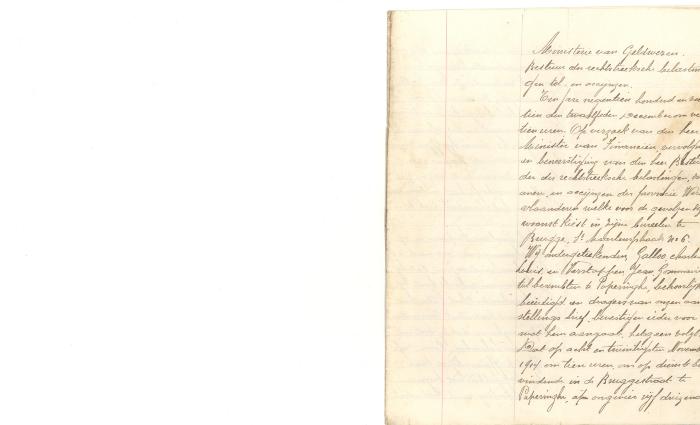 Ministerie van Geldwezen.
Bestuur der rechtstreeksche belastin
gen tol- en accijnzen.
Ten jare negentien honderd en
tien den twaalfden December om
tien uren. Op verzoek van den heer
Minister van Financiën, vervolgin
en benaerstiging van den heer Bestu
der der rechtstreeksche belastingen,
anen, en accijnzen der provincie West
vlaanderen welke voor de gevolgen
woonst kiest in zijne bureelen te
Brugge, St no 6.
Wij ondergeteekenden, Galloo, charle
Louis, en Verstaffen Jean
tol beambten te Poperinghe, behoorlijk
beëedigd en dragers van onzen aan
stellings brief, bevestigen ieder voor
wat hem aangaat, hetgeen volgt.
Dat op acht en twintigsten Novem
1914 om tien uren, ons op dienst be
vindende in de Bruggestraat te
Poperinghe, op ongeveer vijf duizend